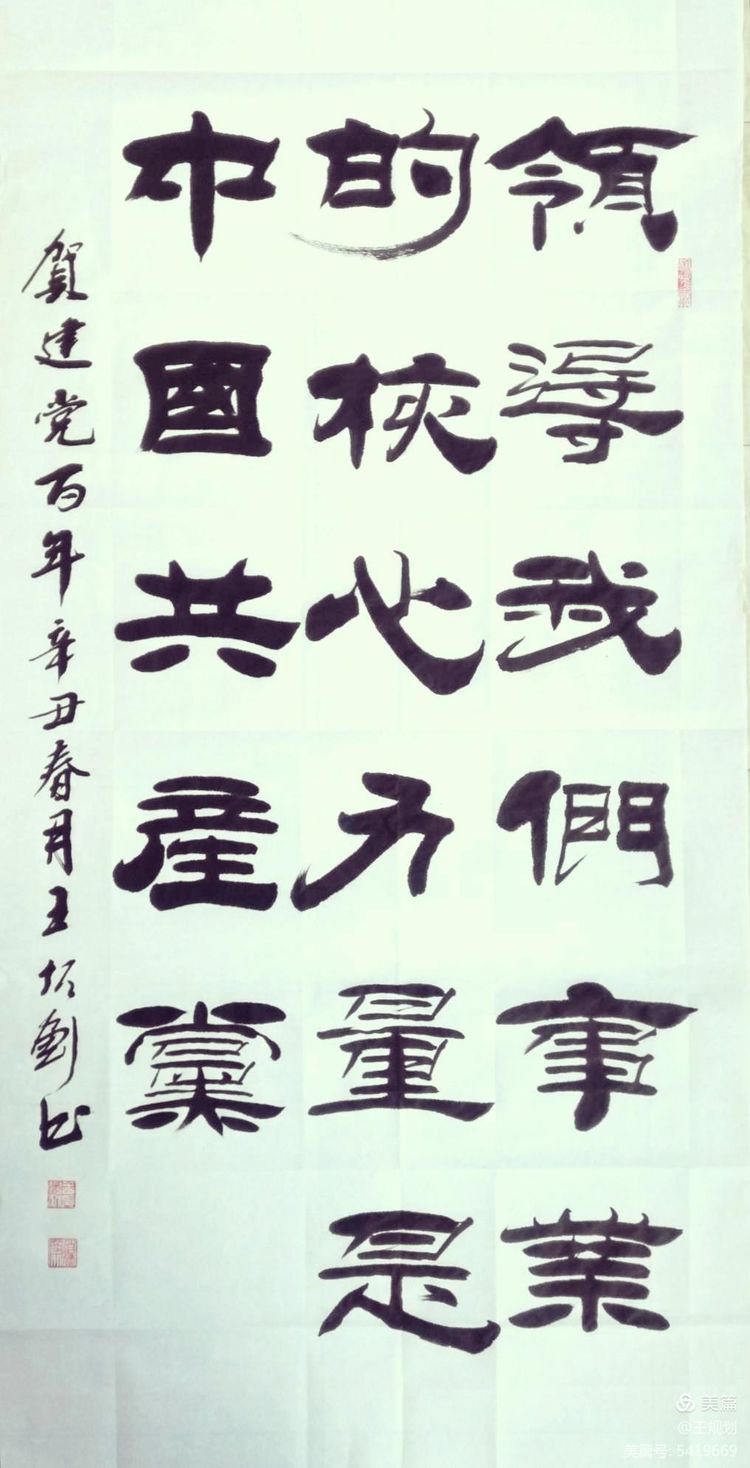 領導我們事業
的核心力量是
中國共産黨
贺建党百年辛丑春月王劍书
美篇
@王规划
美篇号: 5419669